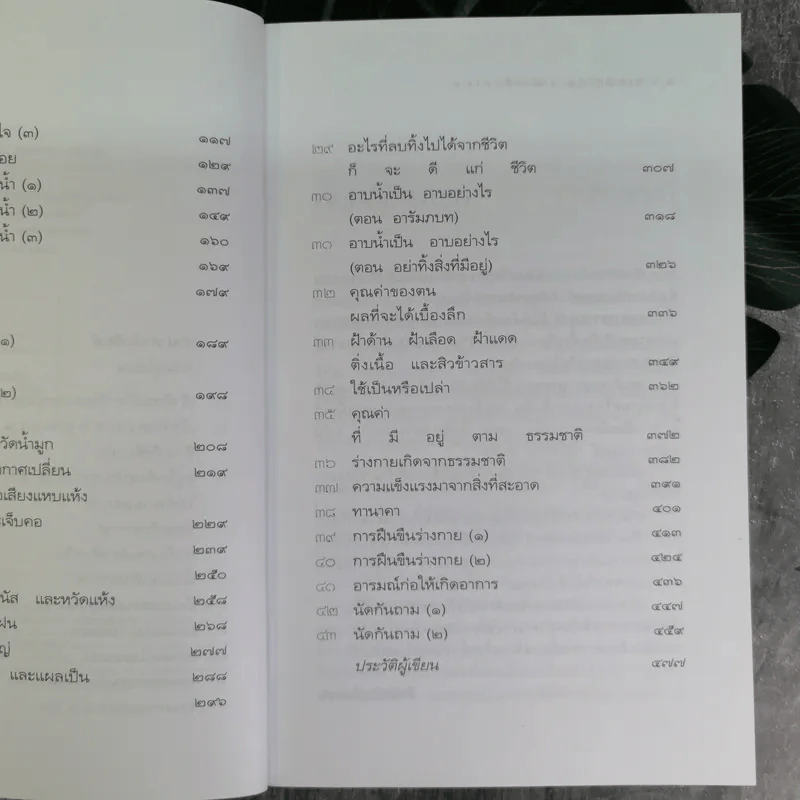 ใจ (๓) ๑๑๗
อย ๑๒๙
น้ำ (๑) ๑๓๗
น้ำ (๒) ๑๔๙
น้ำ (๓) ๑๖๐
๑๖๙
๑๗๙
๑) ๑๘๙
๒) ๑๙๘
วัดน้ำมูก ๒๐๘
กาศเปลี่ยน ๒๑๙
เสียงแหบแห้ง
จ็บคอ ๒๒๙
๒๓๙
๒๕๐
นัส และหวัดแห้ง ๒๕๘
ฝน ๒๖๘
ญ่ ๒๗๗
และแผลเป็น ๒๘๘
๒๙๖
๒๙ อะไรที่ลบทิ้งไปได้จากชีวิต
ก็ จะ ดี แก่ ชีวิต ๓๐๗
๓๐ อาบน้ำเป็น อาบอย่างไร
(ตอน อารัมภบท) ๓๑๘
๓๑ อาบน้ำเป็น อาบอย่างไร
(ตอน อย่าทิ้งสิ่งที่มีอยู่) ๓๒๖
๓๒ คุณค่าของตน
ผลที่จะได้เบื้องลึก ๓๓๖
๓๓ ฝ้าด้าน ฝ้าเลือด ฝ้าแดด
ติ่งเนื้อ และสิวข้าวสาร ๓๔๙
๓๔ ใช้เป็นหรือเปล่า ๓๖๒
๓๕ คุณค่า
ที่ มี อยู่ ตาม ธรรมชาติ ๓๗๒
๓๖ ร่างกายเกิดจากธรรมชาติ ๓๘๒
๓๗ ความแข็งแรงมาจากสิ่งที่สะอาด ๓๙๑
๓๘ ทานาคา ๔๐๑
๓๙ การฝืนขืนร่างกาย (๑) ๔๑๓
๔๐ การฝืนขืนร่างกาย (๒) ๔๒๔
๔๑ อารมณ์ก่อให้เกิดอาการ ๔๓๖
๔๒ นัดกันถาม (๑) ๔๔๗
๔๓ นัดกันถาม (๒) ๔๕๙
ประวัติผู้เขียน ๔๗๗